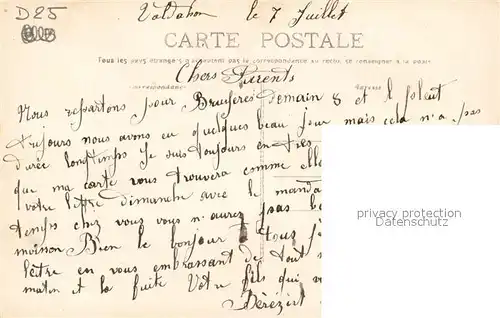 D25
Valdahon le 7 Juillet
CARTE POSTALE
Tous les pays étrangers n'acceptent pas la correspondance au recto, se renseigner à la poste
Chers Parents
Correspondance Adresse
Nous repartons pour Bruyères demain 8 et il pleut
toujours nous avons eu quelques beau jour mais cela n'a pas
durée longtemps Je suis toujours en très
que ma carte vous trouvera comme elle
votre lettre dimanche avec le manda
temps chez vous vous n'aurez pas
moisson Bien le bonjour à tous
lettre en vous embrassant de tout
matin et la suite Votre fils qui
privacy protection
Watermark